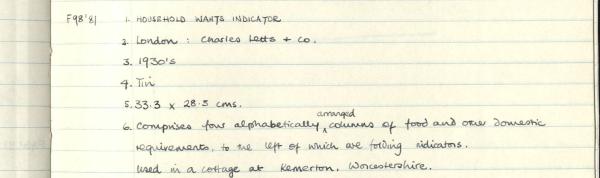 F98'81 1. HOUSEHOLD WANTS INDICATOR
2. London : Charles Letts + Co.
3. 1930's
4. Tin
5. 33.3 x 28.5 cms.
6. Comprises four alphabetically arranged columns of food and other domestic
requirements, to the left of which are folding indicators.
Used in a cottage at Kemerton, Worcestershire.